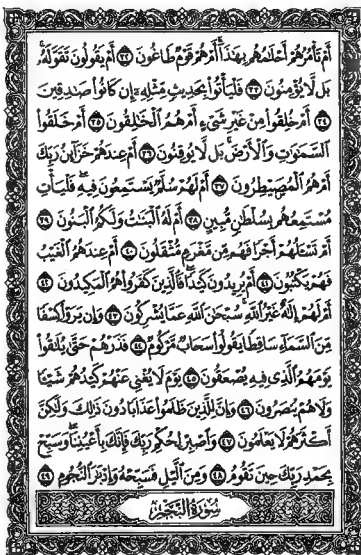 أَمْ تَأْمُرُهُمْ أَحْلَٰمُهُم بِهَٰذَآ ۚ أَمْ هُمْ قَوْمٌ طَاغُونَ ٣٢ أَمْ يَقُولُونَ تَقَوَّلَهُۥ ۚ
بَل لَّا يُؤْمِنُونَ ٣٣ فَلْيَأْتُوا۟ بِحَدِيثٍ مِّثْلِهِۦٓ إِن كَانُوا۟ صَٰدِقِينَ
٣٤ أَمْ خُلِقُوا۟ مِنْ غَيْرِ شَىْءٍ أَمْ هُمُ ٱلْخَٰلِقُونَ ٣٥ أَمْ خَلَقُوا۟
ٱلسَّمَٰوَٰتِ وَٱلْأَرْضَ ۚ بَل لَّا يُوقِنُونَ ٣٦ أَمْ عِندَهُمْ خَزَآئِنُ رَبِّكَ
أَمْ هُمُ ٱلْمُصَۣيْطِرُونَ ٣٧ أَمْ لَهُمْ سُلَّمٌ يَسْتَمِعُونَ فِيهِ ۖ فَلْيَأْتِ
مُسْتَمِعُهُم بِسُلْطَٰنٍ مُّبِينٍ ٣٨ أَمْ لَهُ ٱلْبَنَٰتُ وَلَكُمُ ٱلْبَنُونَ ٣٩
أَمْ تَسْـَٔلُهُمْ أَجْرًا فَهُم مِّن مَّغْرَمٍ مُّثْقَلُونَ ٤٠ أَمْ عِندَهُمُ ٱلْغَيْبُ
فَهُمْ يَكْتُبُونَ ٤١ أَمْ يُرِيدُونَ كَيْدًا ۖ فَٱلَّذِينَ كَفَرُوا۟ هُمُ ٱلْمَكِيدُونَ ٤٢
أَمْ لَهُمْ إِلَٰهٌ غَيْرُ ٱللَّهِ ۚ سُبْحَٰنَ ٱللَّهِ عَمَّا يُشْرِكُونَ ٤٣ وَإِن يَرَوْا۟ كِسْفًا
مِّنَ ٱلسَّمَآءِ سَاقِطًا يَقُولُوا۟ سَحَابٌ مَّرْكُومٌ ٤٤ فَذَرْهُمْ حَتَّىٰ يُلَٰقُوا۟
يَوْمَهُمُ ٱلَّذِى فِيهِ يُصْعَقُونَ ٤٥ يَوْمَ لَا يُغْنِى عَنْهُمْ كَيْدُهُمْ شَيْـًٔا
وَلَا هُمْ يُنصَرُونَ ٤٦ وَإِنَّ لِلَّذِينَ ظَلَمُوا۟ عَذَابًا دُونَ ذَٰلِكَ وَلَٰكِنَّ
أَكْثَرَهُمْ لَا يَعْلَمُونَ ٤٧ وَٱصْبِرْ لِحُكْمِ رَبِّكَ فَإِنَّكَ بِأَعْيُنِنَا ۖ وَسَبِّحْ
بِحَمْدِ رَبِّكَ حِينَ تَقُومُ ٤٨ وَمِنَ ٱلَّيْلِ فَسَبِّحْهُ وَإِدْبَٰرَ ٱلنُّجُومِ ٤٩
سُورَةُ النَّجْمِ